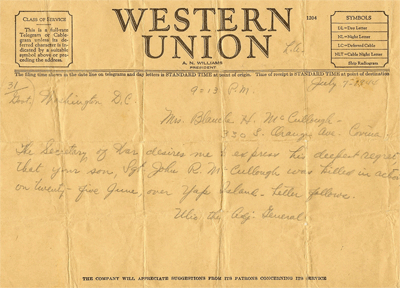 CLASS OF SERVICE
This is a full-rate
Telegram or Cable-
gram unless its de-
ferred character is in-
dicated by a suitable
symbol above or pre-
ceding the address.
WESTERN
UNION
1204
A. N. WILLIAMS
PRESIDENT
SYMBOLS
DL=Day Letter
NL=Night Letter
LC=Deferred Cable
NLT=Cable Night Letter
Ship Radiogram
The filing time shown in the date line on telegrams and day letters is STANDARD TIME at point of origin. Time of receipt is STANDARD TIME at point of destination
31/
Govt, Washington D.C.
9:13 P.M.
July 7
Mrs. Blanche H. McCullough -
330 S. Orange Ave. Covina.
The Secretary of War desires me to express his deepest regret
that your son, Sgt John R. McCullough was killed in action
on twenty-five June, over Yap Island - Letter follows.
Ulio the Adj General
THE COMPANY WILL APPRECIATE SUGGESTIONS FROM ITS PATRONS CONCERNING ITS SERVICE